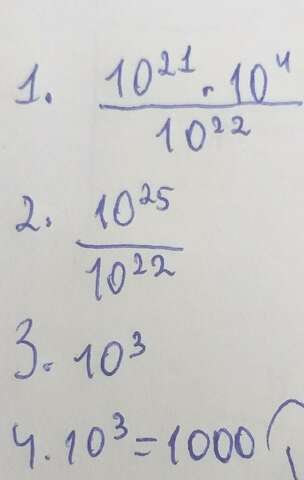 1. 10²¹ · 10⁴
10²²
2. 10²⁵
10²²
3. 10³
4. 10³ = 1000